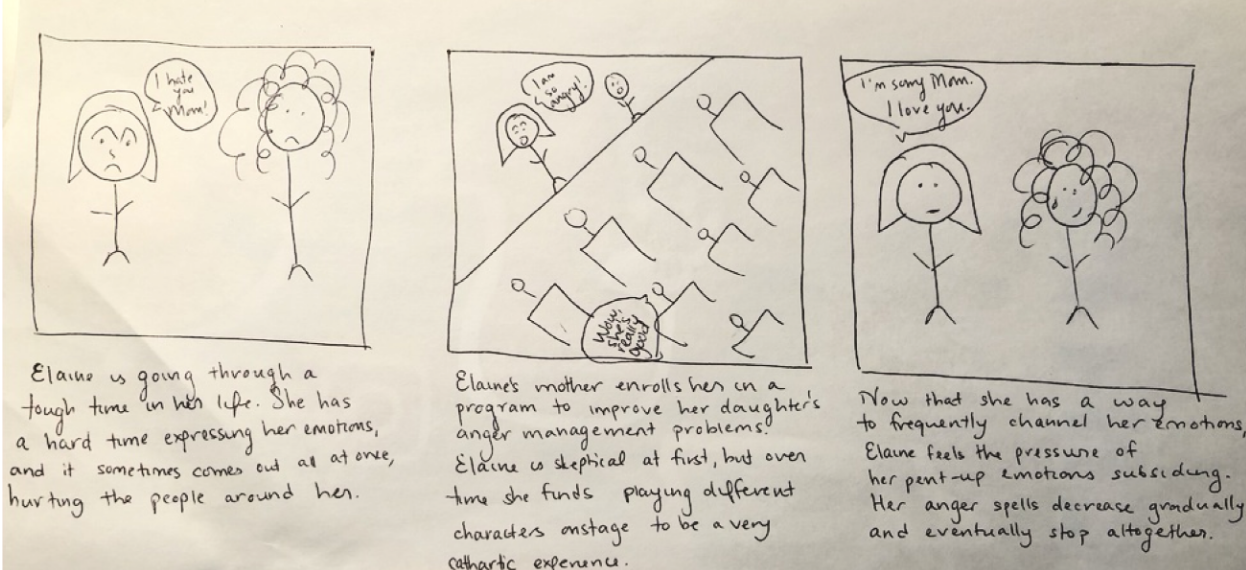 I hate
you
Mom!
Elaine is going through a
tough time in her life. She has
a hard time expressing her emotions,
and it sometimes comes out all at once,
hurting the people around her.
I am
so
angry!
Wow,
she's
really
good
Elaine's mother enrolls her in a
program to improve her daughter's
anger management problems.
Elaine is skeptical at first, but over
time she finds playing different
characters onstage to be a very
cathartic experience.
I'm sorry Mom.
I love you.
Now that she has a way
to frequently channel her emotions,
Elaine feels the pressure of
her pent-up emotions subsiding.
Her anger spells decrease gradually
and eventually stop altogether.